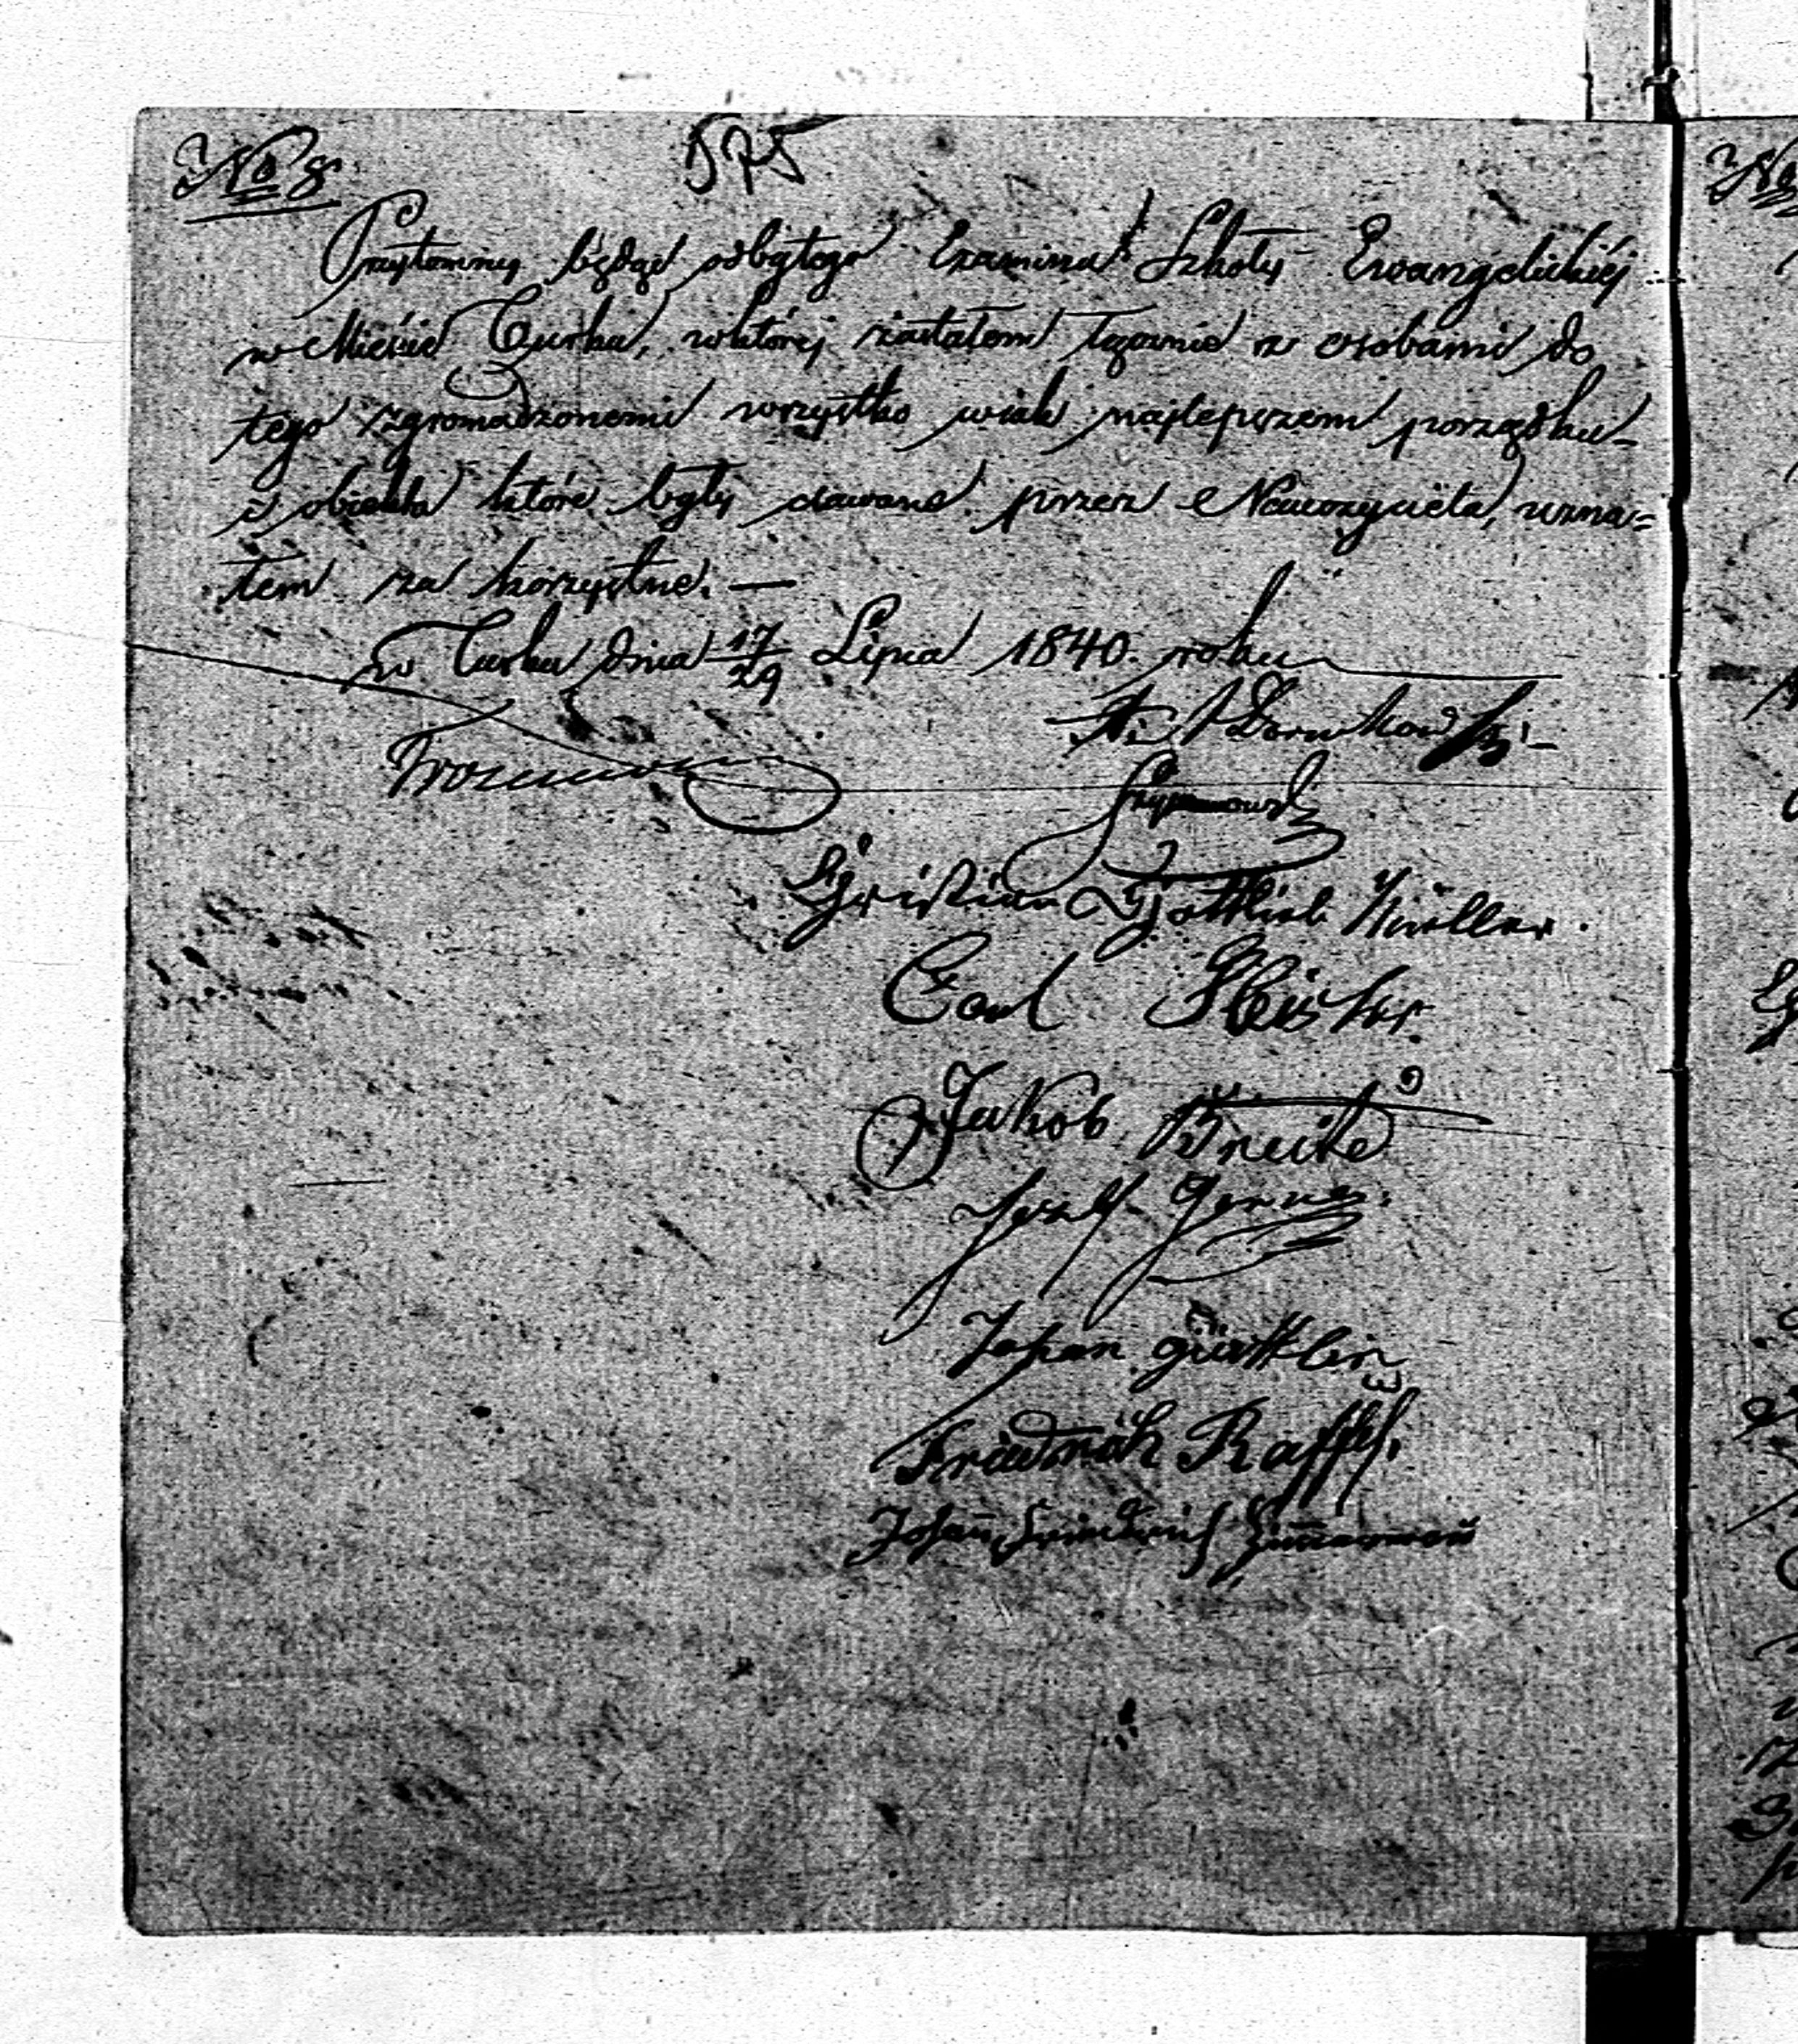 No 8
575
Przytomny będąc odbytego Examina Szkoły Ewangelickiéj
w Mieście Turku, wktórej zastałem łącznie z osobami do
tego zgromadzonemi wszystko wiak najlepszem porządku
i obiekta które były dawane przez Nauczyciela, uzna=
łem za korzystne. —
w Turku dnia 17/29 Lipca 1840. roku
Christian Gottlieb Müller.
Carl
Jakob
Johan
Friedrich Raffel.
Johan Friedrich Zimerman